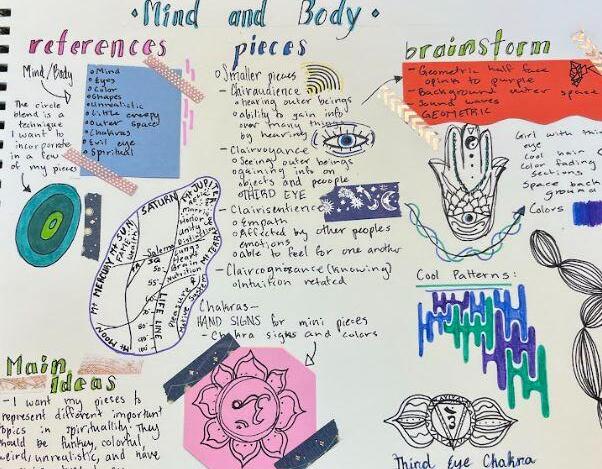 Mind and Body
references
Mind/Body
The circle
blend is a
technique
I want to
incorporate
in a few
of my pieces
Mind
Eyes
Color
Shapes
Unrealistic
Little creepy
Outer space
Chakras
Evil eye
Spiritual
SATURN
MT. JUPITER
MT. SUN
MT MERCURY
MT MOON
LIFE LINE
Lungs
Heart
Brain
Nutrition
Main
Ideas
- I want my pieses to
represent different important
topics in spirituality. They
should be funky, colorful,
weird/unrealistic, and have
pieces
Smaller pieces
- Chiraudience
hearing outer beings
ability to gain info
over many things
by hearing
- Clairvoyance
Seeing outer beings
gaining info on
objects and people
THIRD EYE
- Clairsentience
Empath
Affected by other peoples
emotions
able to feel for one another
- Claircognosance (knowing)
Intuition related
Chakras-
HAND SIGNS for mini pieces
- Chakra signs and colors
brainstorm
- Geometric half face
pink to purple
- Background outer space
Sound waves
GEOMETRIC
Girl with third
eye
Cool hair
Color fading
sections
Space back
ground
Colors
Cool Patterns:
Third Eye Chakra